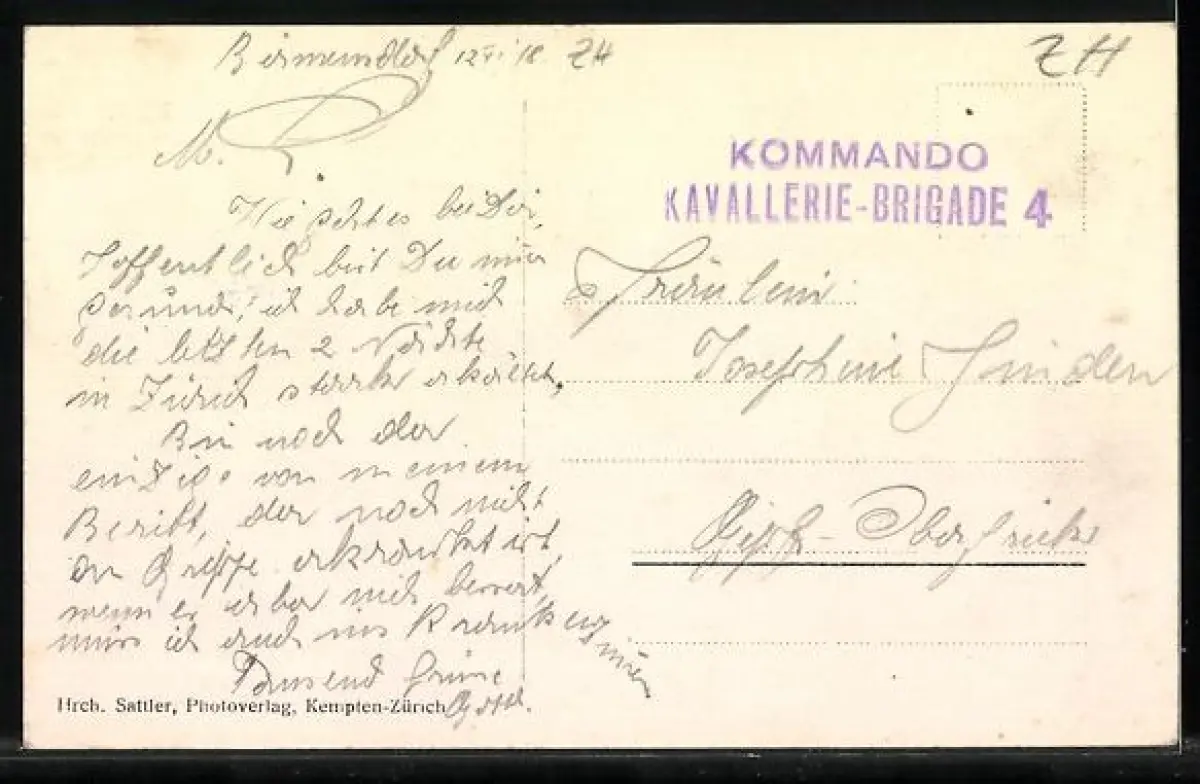 Birmensdorf 12 VI 18 ZH
ZH
M. L.
KOMMANDO
KAVALLERIE-BRIGADE 4
Wie geht es bei Dir,
hoffentlich bist Du mir
gesund; ich habe mich
die letzten 2 Nächte
in Zürich stark erkältet,
Bin noch der
einzige von meinem
Beritt, der noch nicht
an Grippe erkrankt ist,
wenn es aber nicht bessert,
muss ich auch ins Krankenzimmer
Tausend Grüsse
Fräulein
Josephine
Gipf-Oberfrick
Hrch. Sattler, Photoverlag, Kempten-Zürich